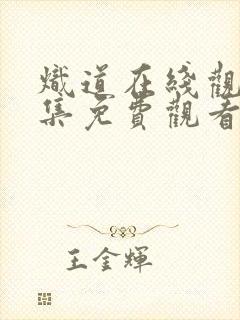 熾道在綫觀
集免費觀看
王金輝